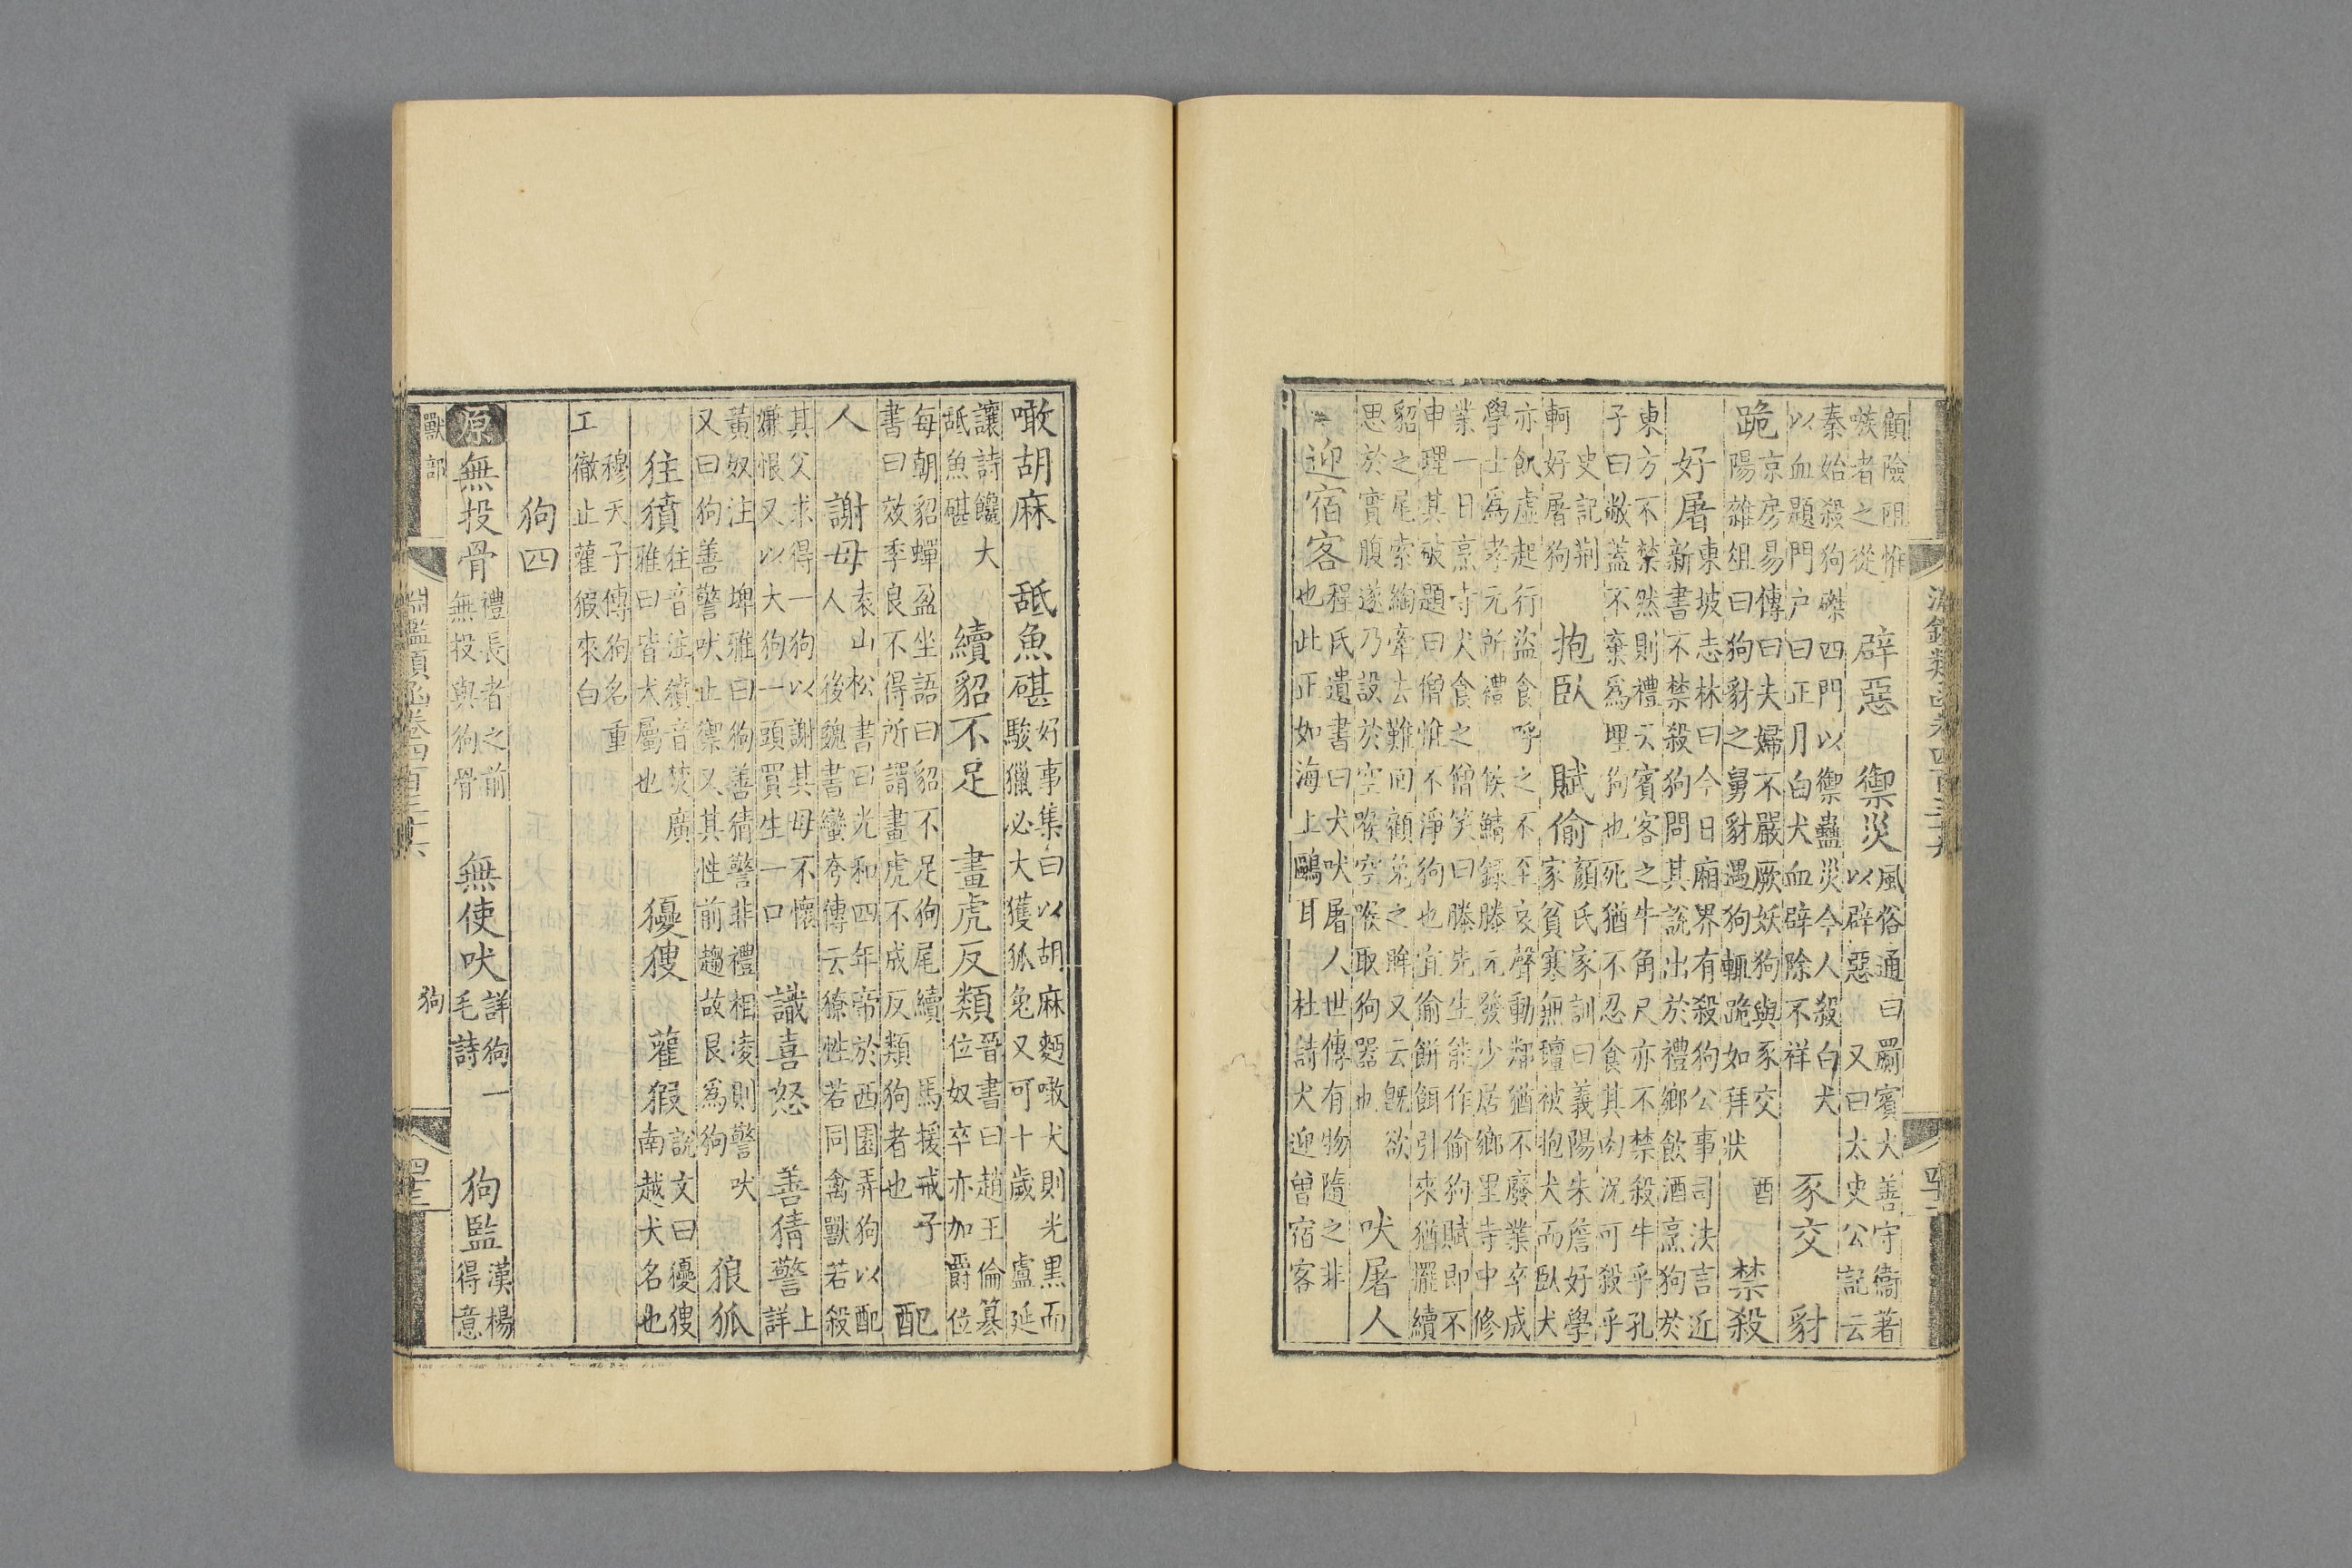 淵鑑類函卷四百三十六
顧險阻惟嗾者之從 辟惡 禦災 風俗通曰罽賓犬善守衞著以辟惡 又曰太史公記云
秦始殺狗磔四門以禦蠱災今人殺白犬以血題門户曰正月白犬血辟除不祥 豕交 豺
跪 京房易傳曰夫婦不嚴厥妖狗與豕交 酉陽雜俎曰狗豺之舅豺遇狗輒跪如拜狀 禁殺
好屠 東坡志林曰今日廂界有殺狗公事司法言近新書不禁殺狗問其說出於禮鄉飲酒烹狗於
東方不禁然則禮云賓客之牛角尺亦不禁殺牛乎孔子曰敝蓋不棄爲埋狗也死猶不忍食其肉況可殺乎
史記荆軻好屠狗 抱臥 賦偷 顏氏家訓曰義陽朱詹好學家貧寒無氊被抱犬而臥犬
亦飢虛起行盜食呼之不至哀聲動鄰猶不廢業卒成學士爲孝元所禮 候鯖録滕元發少居鄉里寺中修
業一日烹寺犬食之僧笑曰滕先生能作偷狗賦即不申理其破題曰僧惟不淨狗也宜偷餅餌引來猶擺續
貂之尾索綯牽去難回顧兔之眸又云旣欲思於實腹遂乃設於空喉空喉取狗器也 吠屠人
迎宿客 程氏遺書曰犬吠屠人世傳有物隨之非也此正如海上鷗耳 杜詩犬迎曾宿客
噉胡麻 舐魚碪 好事集曰以胡麻麪噉犬則光黑而駿獵必大獲狐兔又可十歲 盧延
讓詩饞犬舐魚碪 續貂不足 畫虎反類 晉書曰趙王倫篡位奴卒亦加爵位
每朝貂蟬盈坐語曰貂不足狗尾續 馬援戒子書曰效季良不得所謂畫虎不成反類狗者也 配
人 謝母 袁山松書曰光和四年帝於西園弄狗以配人 後魏書蠻夸傳云獠性若同禽獸若殺
其父求得一狗以謝其母不懷嫌恨又以大狗一頭買生一口 識喜怒 善猜警 詳上
黃奴注 埤雅曰狗善猜警非禮相凌則警吠又曰狗善警吠止禦又其性前趨故艮爲狗 狼狐
狂獖 狂音注獖音焚廣雅曰皆犬屬也 獶獀 雚猳 說文曰獶獀南越犬名也
穆天子傳狗名重工徹止雚猳來白
狗四
原 無投骨 禮長者之前無投與狗骨 無使吠 詳狗一毛詩 狗監 漢楊得意
獸部 淵鑑類函卷四百三十六 狗